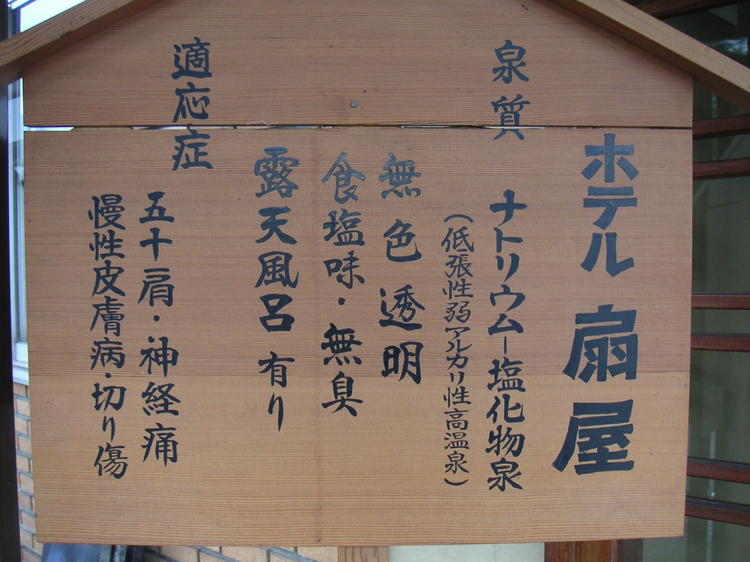 ホテル 扇屋
泉質 ナトリウムー塩化物泉
（低張性弱アルカリ性高温泉）
無色透明
食塩味・無臭
露天風呂 有り
適応症
五十肩・神経痛
慢性皮膚病・切り傷